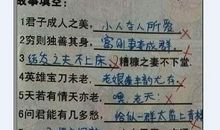 故事填空:
1君子成人之美, 小人夺人所爱
2穷则独善其身, 富则妻妾成群
3结发之夫不上床 糟糠之妻不下堂
4英雄宝刀未老,老娘丰韵犹存
5天若有情天亦老, 喂, 老天!
6问君能有几多愁, 恰似一群太监上青楼